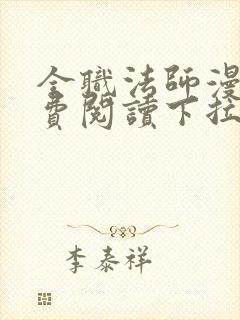 全職法師漫
費閱讀下拉
李泰祥